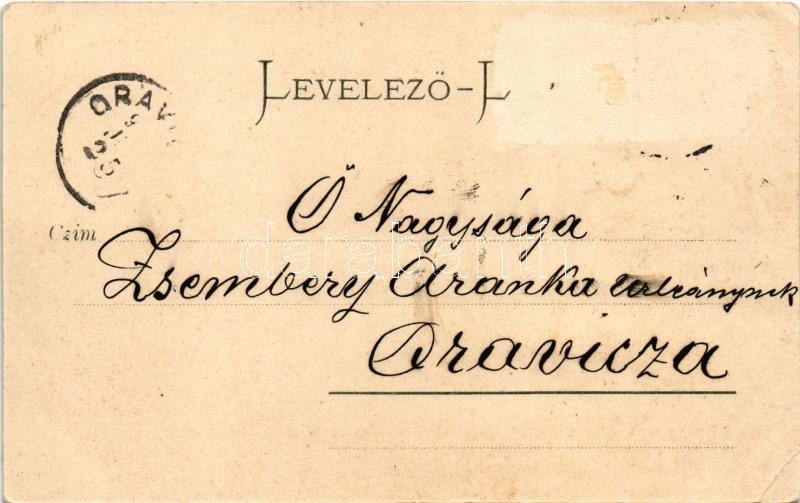 LEVELEZŐ-L
ORAV
Czim
Ő Nagysága
Zsembery Aranka
Oravicza
darabanth